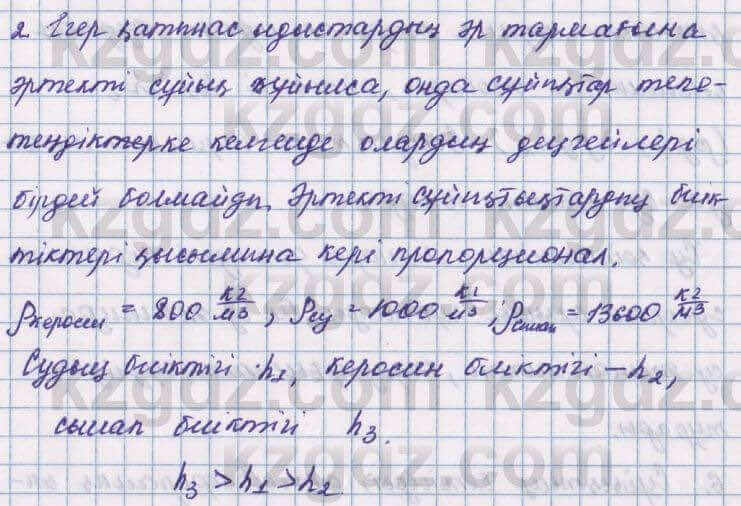 2. Егер қатынас ыдыстардың әр тармағына
әртекті сұйық құйылса, онда сұйықтар тепе-
теңдіктерке келгенде олардың деңгейлері
бірдей болмайды. Әртекті сұйықтықтардың биік-
тіктері қысымына кері пропорционал.
ρкеросин = 800 кг/м3, ρсу = 1000 кг/м3; ρсынап = 13600 кг/м3
Судың биіктігі h1, керосин биіктігі – h2,
сынап биіктігі h3.
h3 > h1 > h2
kzgdz.com